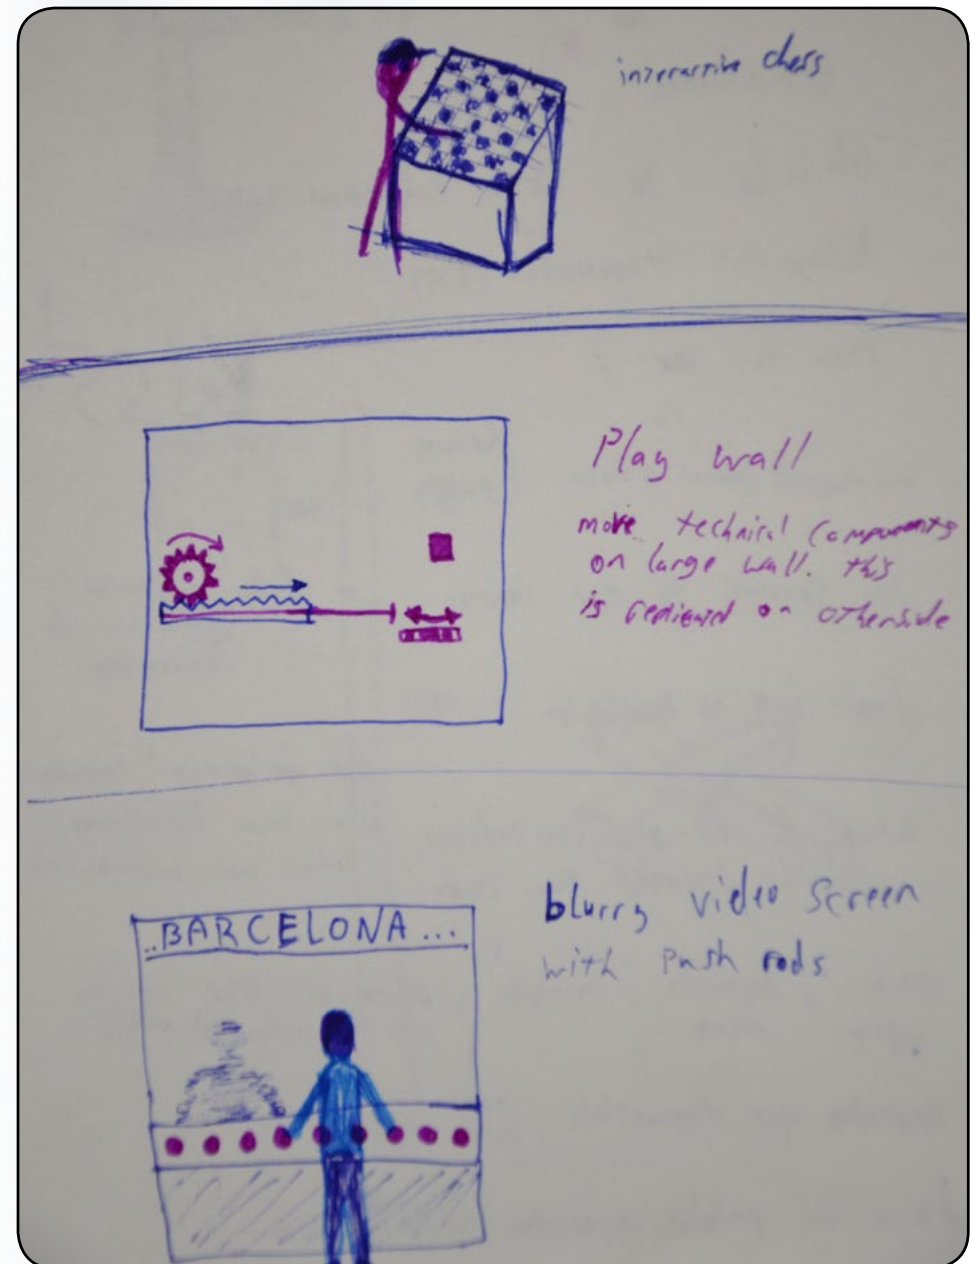 interactive chess
Play wall
move technical components
on large wall. this
is on otherside
..BARCELONA...
blurry video screen
with push rods